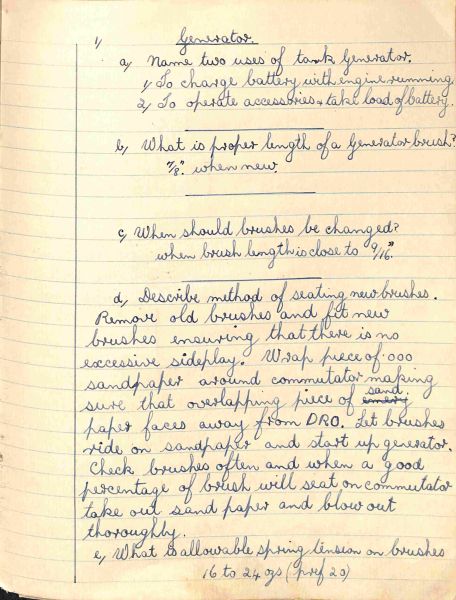 1) Generator.
a) Name two uses of tank Generator.
1) To charge battery with engine running
2) To operate accessories & take load of battery.
b) What is proper length of a Generator brush?
7/8". when new.
c) When should brushes be changed?
when brush length is close to 9/16".
d) Describe method of seating new brushes.
Remove old brushes and fit new
brushes ensuring that there is no
excessive sideplay. Wrap piece of .000
sandpaper around commutator making
sure that overlapping piece of emery sand
paper faces away from DRO. Let brushes
ride on sandpaper and start up generator.
Check brushes often and when a good
percentage of brush will seat on commutator
take out sand paper and blow out
thoroughly.
e) What is allowable spring tension on brushes
16 to 24 ozs (pref 20)